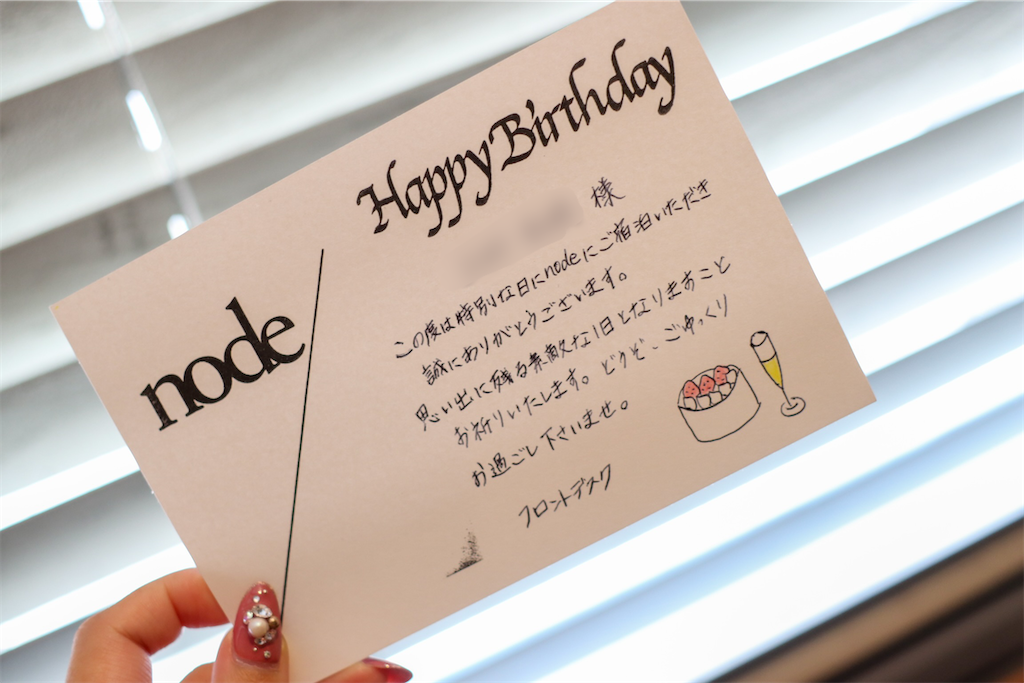 node
Happy Birthday
様
この度は特別な日にnodeにご宿泊いただき
誠にありがとうございます。
思い出に残る素敵な1日となりますこと
お祈りいたします。どうぞ、ごゆっくり
お過ごし下さいませ。
フロントデスク